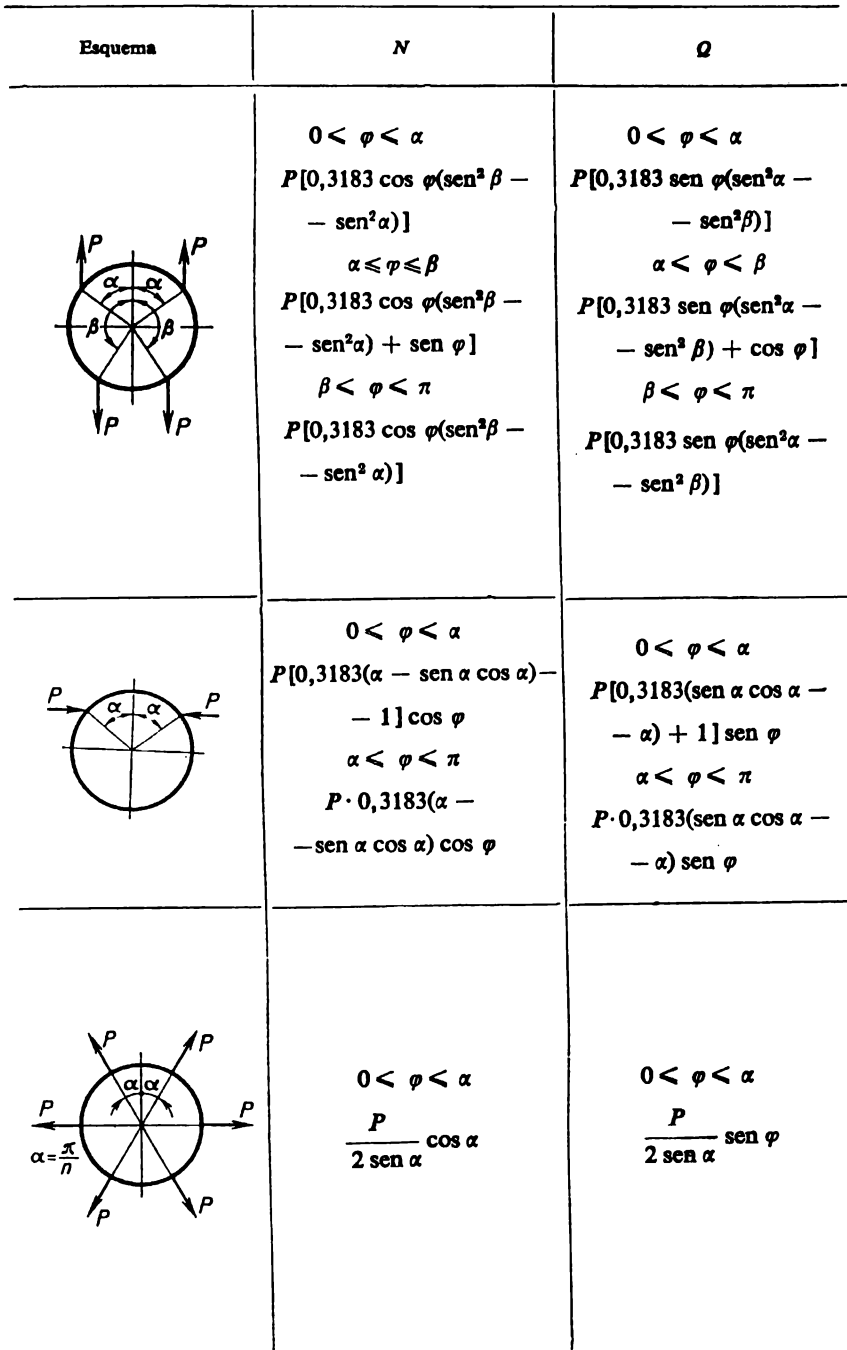 Esquema N Q
P P
α α
β β
P P
0 < φ < α
P[0,3183 cos φ(sen² β —
— sen²α)]
α ≤ φ ≤ β
P[0,3183 cos φ(sen²β —
— sen²α) + sen φ]
β < φ < π
P[0,3183 cos φ(sen²β —
— sen² α)]
0 < φ < α
P[0,3183 sen φ(sen²α —
— sen²β)]
α < φ < β
P[0,3183 sen φ(sen²α —
— sen² β) + cos φ]
β < φ < π
P[0,3183 sen φ(sen²α —
— sen² β)]
P P
α α
0 < φ < α
P[0,3183(α — sen α cos α) —
— 1] cos φ
α < φ < π
P · 0,3183(α —
—sen α cos α) cos φ
0 < φ < α
P[0,3183(sen α cos α —
— α) + 1] sen φ
α < φ < π
P·0,3183(sen α cos α —
— α) sen φ
P P
α α
P P
α = π/n
P P
0 < φ < α
P/(2 sen α) cos α
0 < φ < α
P/(2 sen α) sen φ